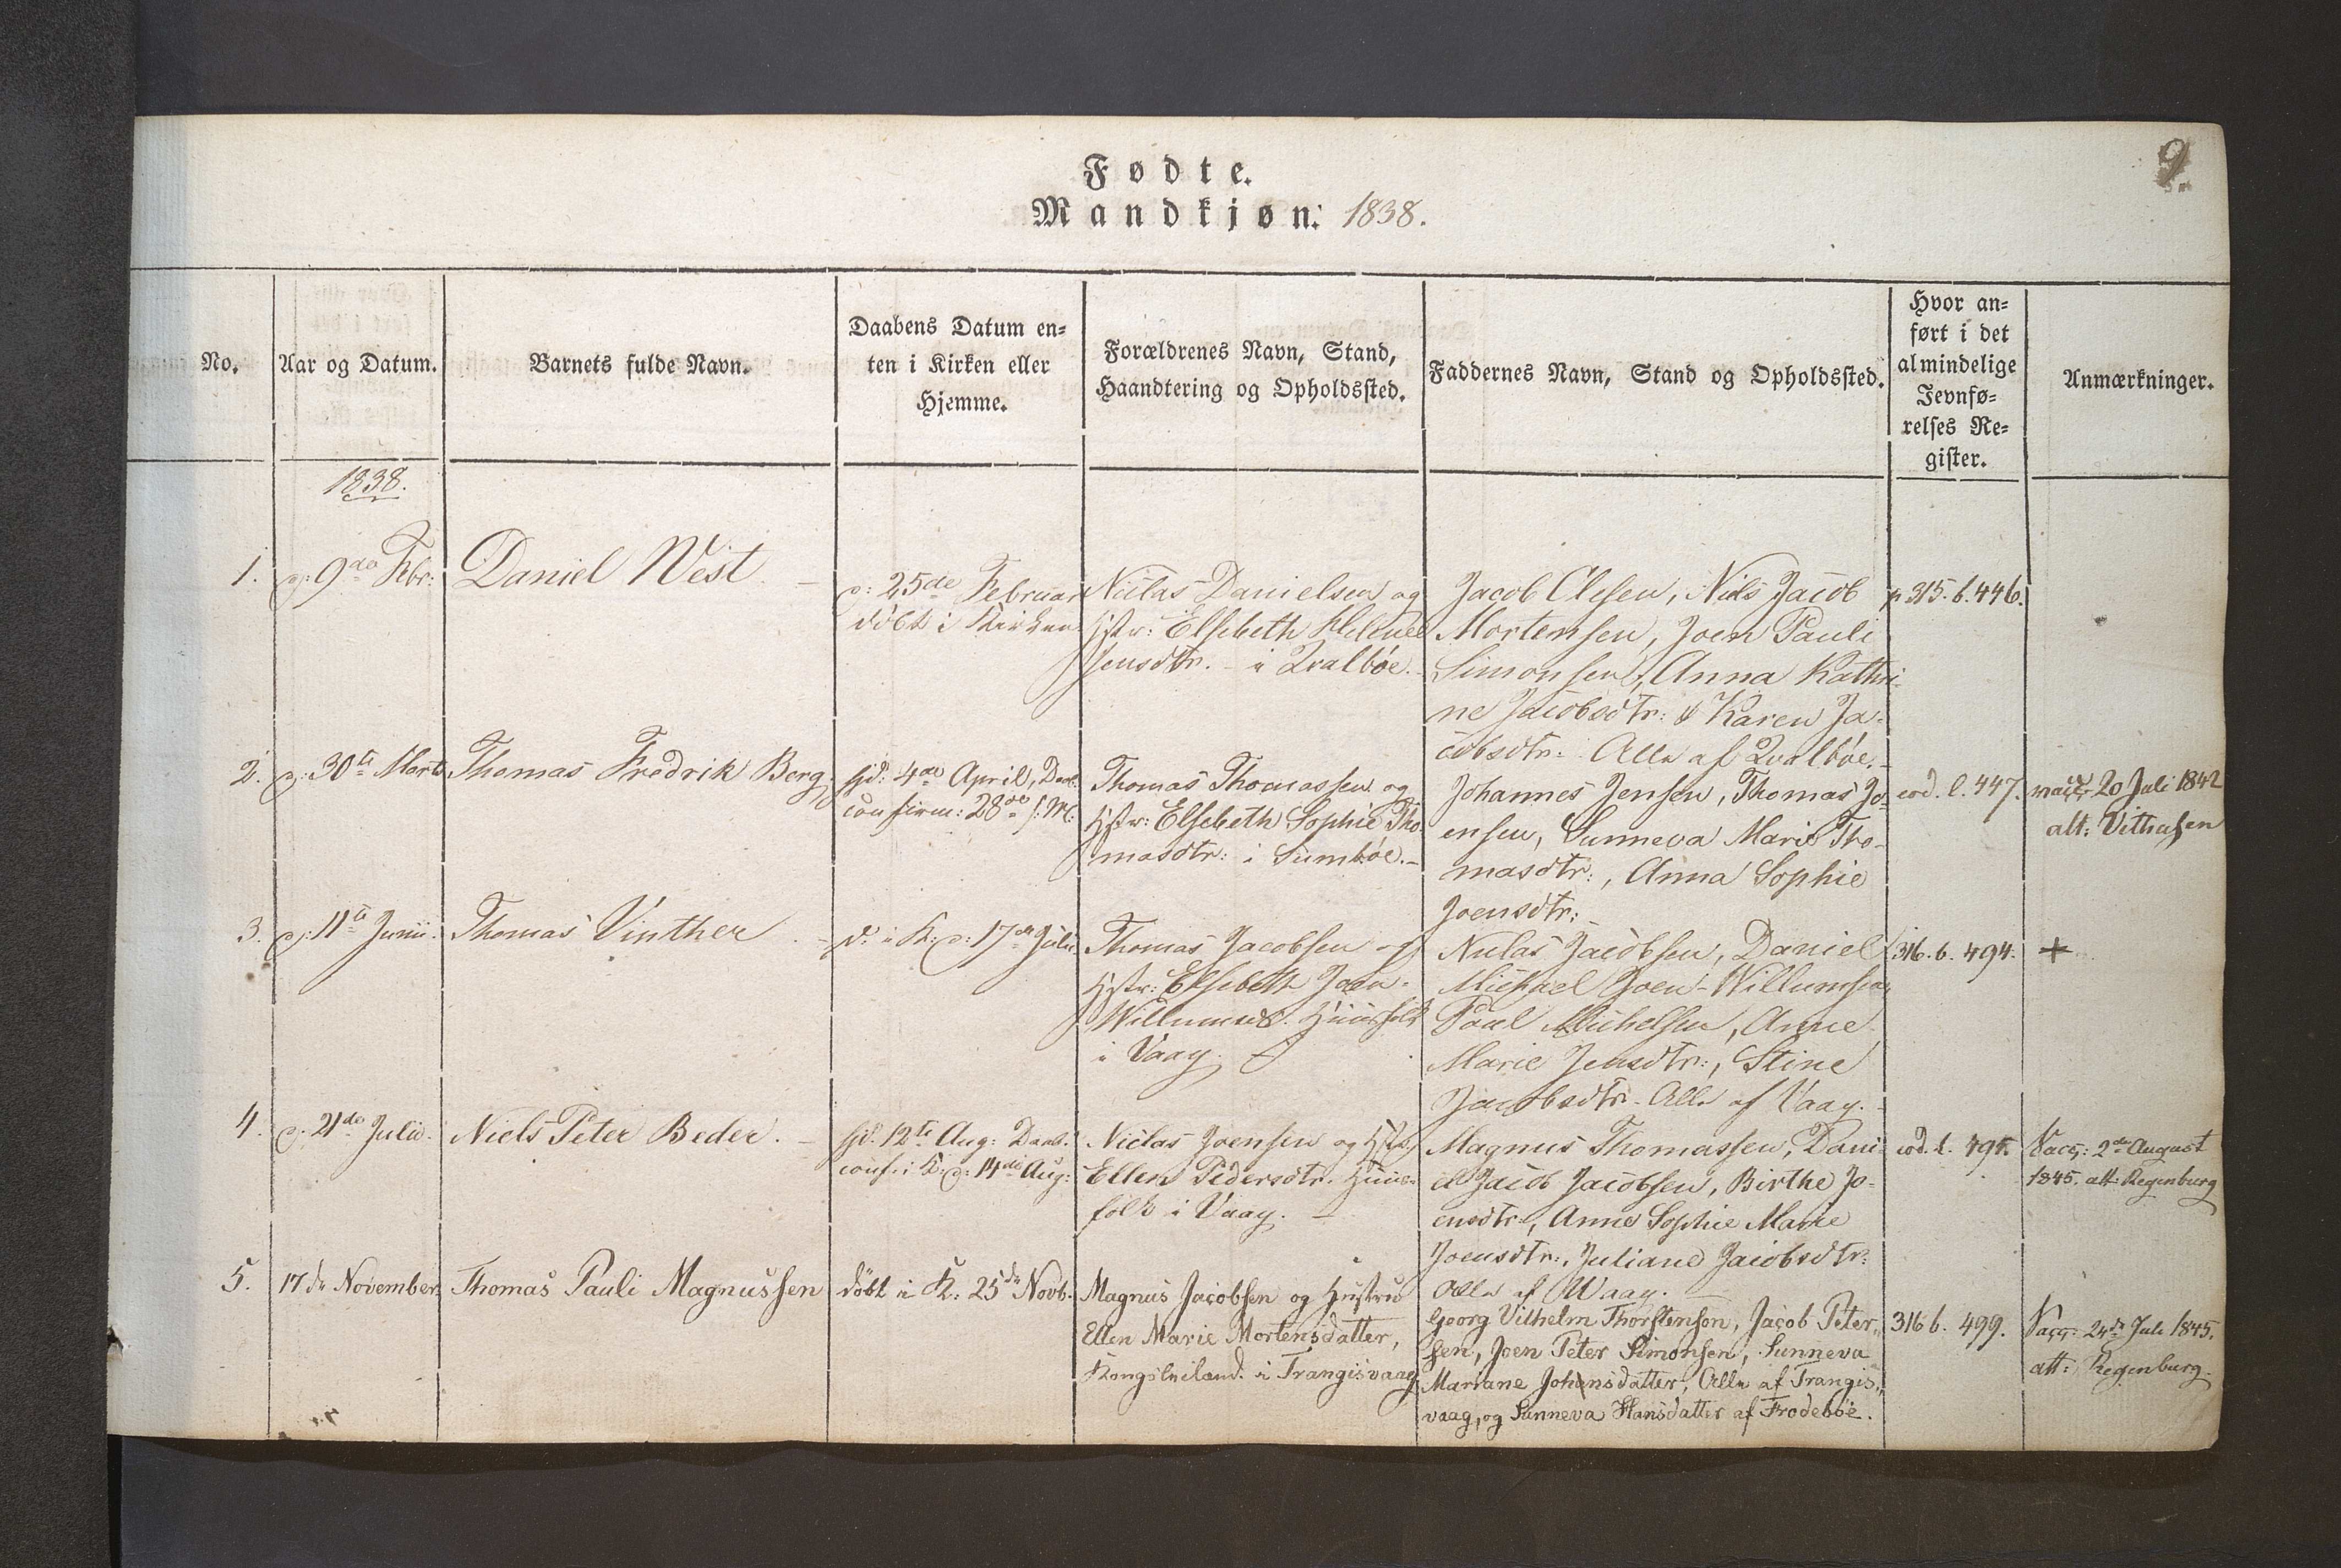 9.
Fødte.
Mandkjøn. 1838.
No.
Aar og Datum.
Barnets fulde Navn.
Daabens Datum en=
ten i Kirken eller
Hjemme.
Forældrenes Navn, Stand,
Haandtering og Opholdssted.
Faddernes Navn, Stand og Opholdssted.
Hvor an=
ført i det
almindelige
Jevnfø=
relses Re=
gister.
Anmærkninger.
1838.
1.
d: 9de Febr:
Daniel West. –
d: 25de Februar
döbt i Kirken
Niclas Danielsen og
Hstr: Elsebeth Helene
Jensdtr. - i Qvalböe. -
Jacob Olesen, Niels Jacob
Mortensen, Joen Pauli
Simonsen, Anna Kathri-
ne Jacobsdtr: & Karen Ja-
cobsdtr. Alle af Qvalböe. -
p 315. b. 446.
2.
d: 30te Marts
Thomas Fredrik Berg.
hjd: 4de April, Daab.
confirm: 28de s: M.
Thomas Thomassen og
Hstr: Elsebeth Sophie Tho-
masdtr: i Sumböe. -
Johannes Jensen, Thomas Jo-
ensen, Sunneva Marie Tho-
masdtr:, Anna Sophie
Joensdtr: -
eod. l. 447.
vacc 20 Juli 1842
att:
3.
d: 11te Junii.
Thomas Vinther. -
d. i K: d: 17de Juni
Thomas Jacobsen og
Hstr: Elsebeth Joen-
Willumsd. Huusfolk
i Vaag.
Niclas Jacobsen, Daniel
Michael Joen-Willumsen,
Poul Michelsen, Anne
Marie Jensdtr:, Stine
Jacobsdtr. Alle af Vaag. -
316. b. 494.
+
4.
d: 21de Julii.
Niels Peter Beder. -
hjd. 12te Aug: Daab.
conf. i K: d: 14de Aug:
Niclas Joensen og Hstr:
Ellen Pedersdtr. Huus-
folk i Vaag. -
Magnus Thomassen, Dani-
el Jacob Jacobsen, Birthe Jo-
ensdtr., Anne Sophie Marie
Joensdtr:, Juliane Jacobsdtr:
Alle af Waag. -
eod. l. 495.
Vacc: 2de August
1845. att: Regenburg
5.
17de November.
Thomas Pauli Magnussen
döbt i K: 25de Novb.
Magnus Jacobsen og Hustru
Ellen Marie Mortensdatter,
i Trangisvaag.
Georg Vilhelm Thorstenson, Jacob Peter„
sen, Joen Peter Simonsen, Sunneva
Mariane Johensdatter, Alle af Trangis„
vaag, og Sunneva Hansdatter af Frodeböe.
316 b. 499.
Vacc. 24de Juli 1845.
att: Regenburg.